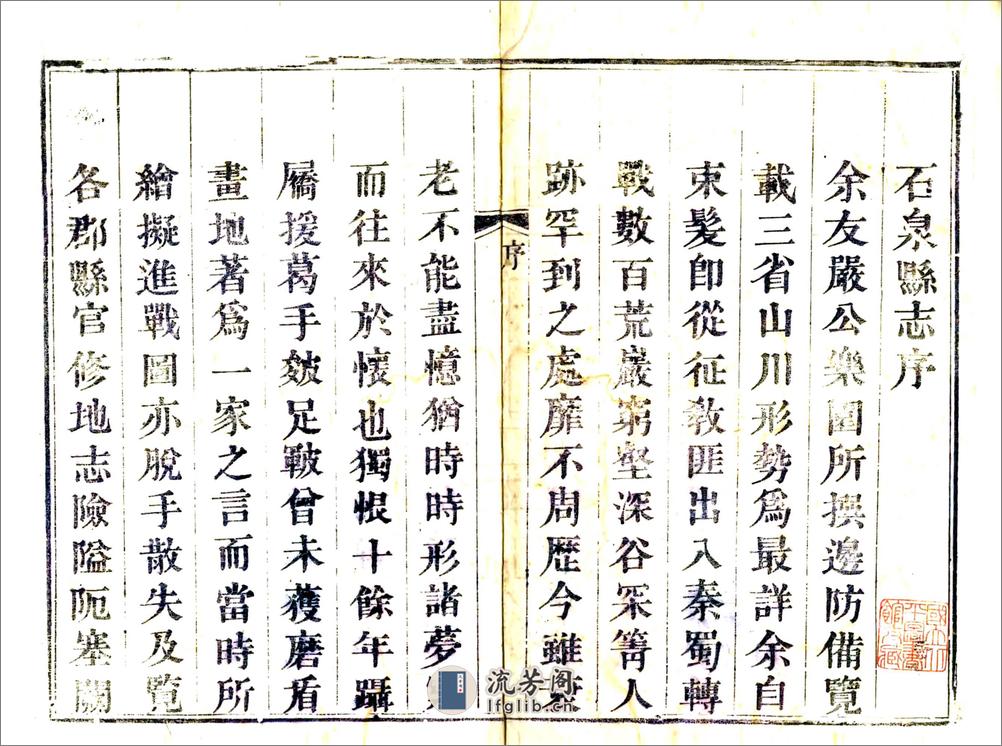 石泉縣志序
余友嚴公樂園所撰邊防備覽
載三省山川形勢爲最詳余自
束髮卽從征敎匪出入秦蜀轉
戰數百荒巖窮壑深谷罙箐人
跡罕到之處靡不周歷今雖
序
老不能盡憶猶時時形諸夢
而往來於懷也獨恨十餘年躡
屩援葛手皴足皸曾未獲磨盾
畫地著爲一家之言而當時所
繪擬進戰圖亦脫手散失及覧
各郡縣官修地志險隘阨塞闕
流芳阁
lfglib.cn